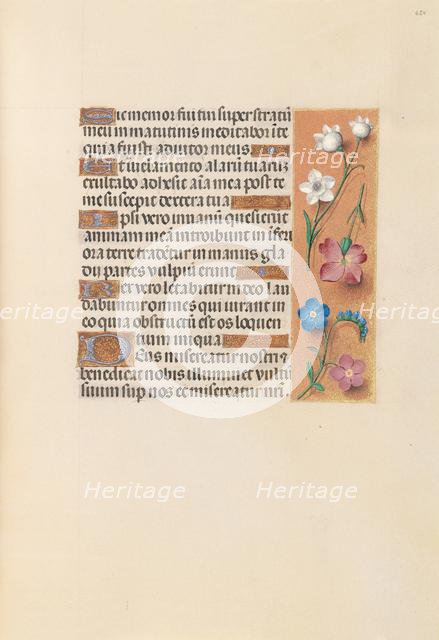 Sic memor fui tui super stratū
meū in matutinis meditabor ī te
quia fuisti adiutor meus
Et in velamento alarū tuarū
exultabo adhesit aīa mea post te
me suscepit dextera tua
Ipsi vero in vanū quesierūt
animam meā introibunt in iferi
ora terre tradētur in manus gla
dij partes vulpiū erunt
Rex vero letabitur in deo lau
dabūtur omnes qui iurant in
eo quia obstructū est os loquen
tium iniqua
Deus misereatur nostri ⁊
benedicat nobis illuminet vultū
suum sup nos et misereatur nrī.
Heritage
Heritage
Heritage
Heritage
Heritage